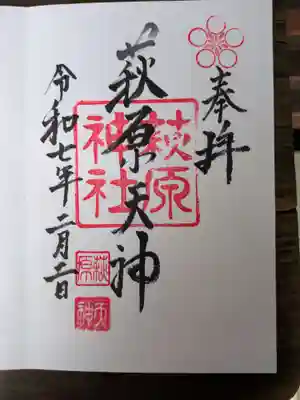 奉拝
萩原天神
萩原
神社
令和七年二月二日
萩原